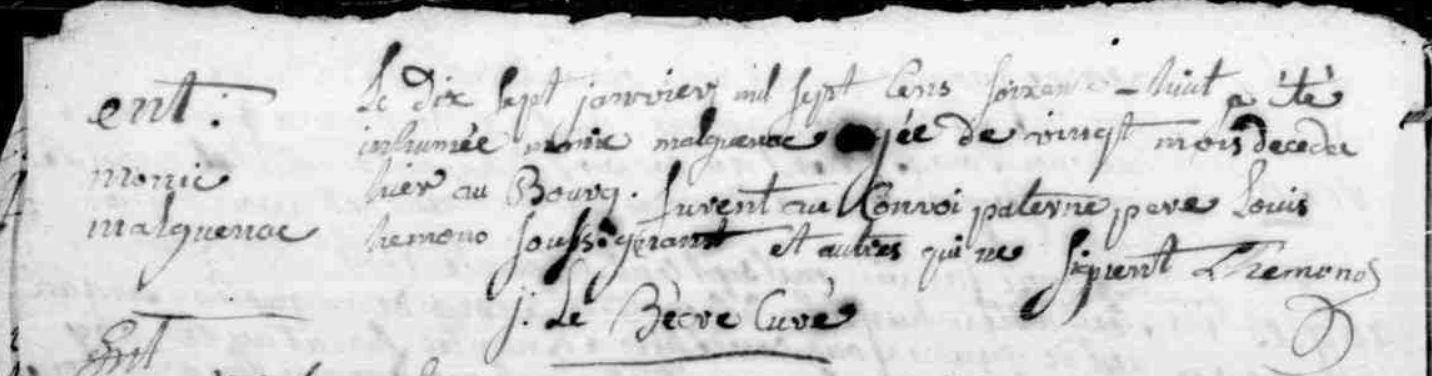 ent.
monic
malguenac
Le dix sept janvier mil sept cens soixante-huit a été
inhumée monic malguenac agée de vingt mois decedee
hier au Bourg. furent au Convoi paterne pere Louis
hemono soussigérant et autres qui ne signent L hemono
j. Le Bècre Curé
Ent